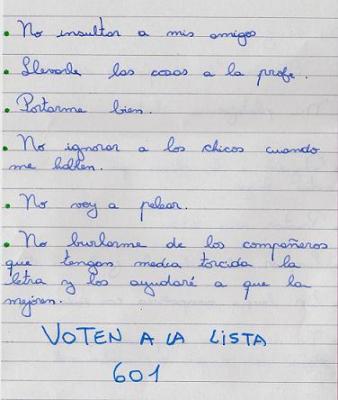 • No insultar a mis amigos
• Llevarle las cosas a la profe.
• Portarme bien.
• No ignorar a los chicos cuando
me hablen.
• No voy a pelear.
• No burlarme de los compañeros
que tengan media torcida la
letra y los ayudaré a que la
mejoren.
VOTEN A LA LISTA
601